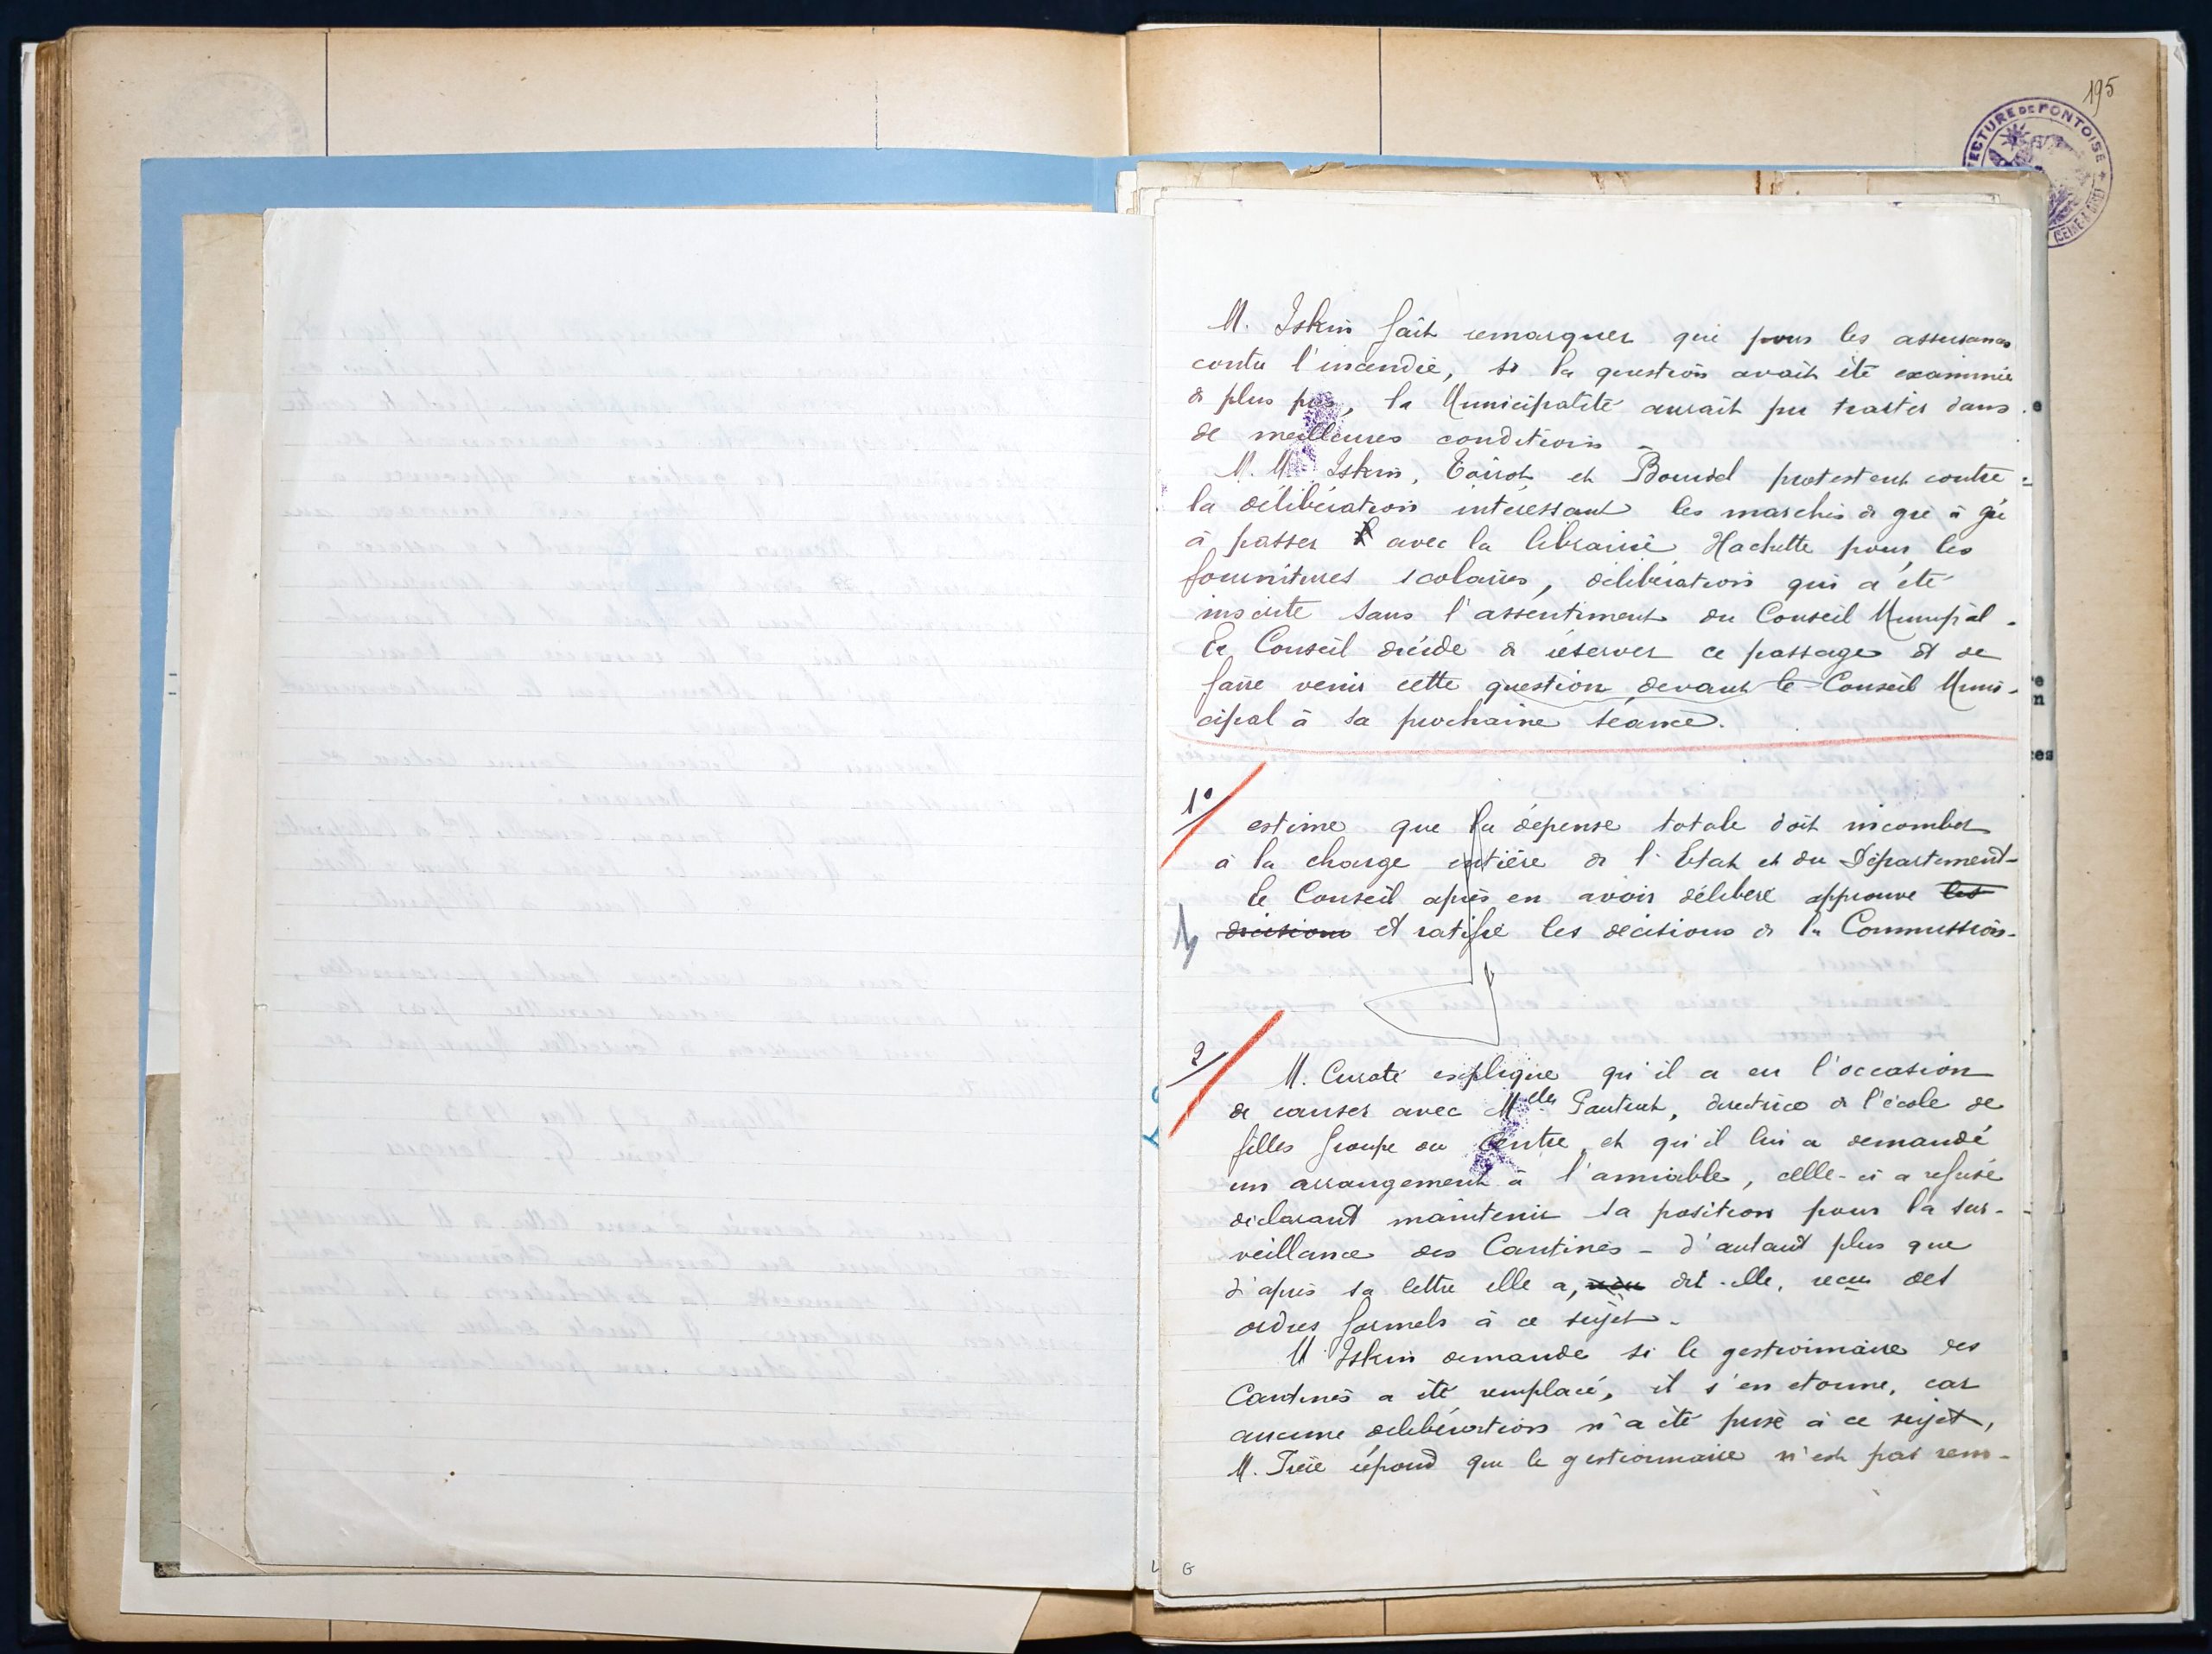 195
ECTURE DE PONTOISE
M. Iskin fait remarquer que pour les assurances
contre l'incendie, si la question avait été examinée
de plus près, la Municipalité aurait pu traiter dans
de meilleures conditions -
M. M. Iskin, et protestent contre
la délibération intéressant les marchés de gré à gré
à passer avec la librairie Hachette pour les
fournitures scolaires, délibération qui a été
inscrite sans l'assentiment du Conseil Municipal.
Le Conseil décide de réserver ce passage et de
faire venir cette question devant le Conseil Muni-
cipal à sa prochaine séance.
1°
estime que la dépense totale doit incomber
à la charge entière de l'Etat et du Département-
Le Conseil après en avoir délibéré approuve les
décisions et ratifié les décisions de la Commission-
2
M. Curaté explique qu'il a eu l'occasion
de causer avec Melle directrice de l'école de
filles Groupe du Centre, et qu'il lui a demandé
un arrangement à l'amiable, celle-ci a refusé
déclarant maintenir sa position pour la sur-
veillance des Cantines - d'autant plus que
d'après sa lettre elle a, dit-elle, reçu des
ordres formels à ce sujet -
M. Iskin demande si le gestionnaire des
Cantines a été remplacé, il s'en étonne, car
aucune délibération n'a été prise à ce sujet,
M. répond que le gestionnaire n'est pas rem-
L G